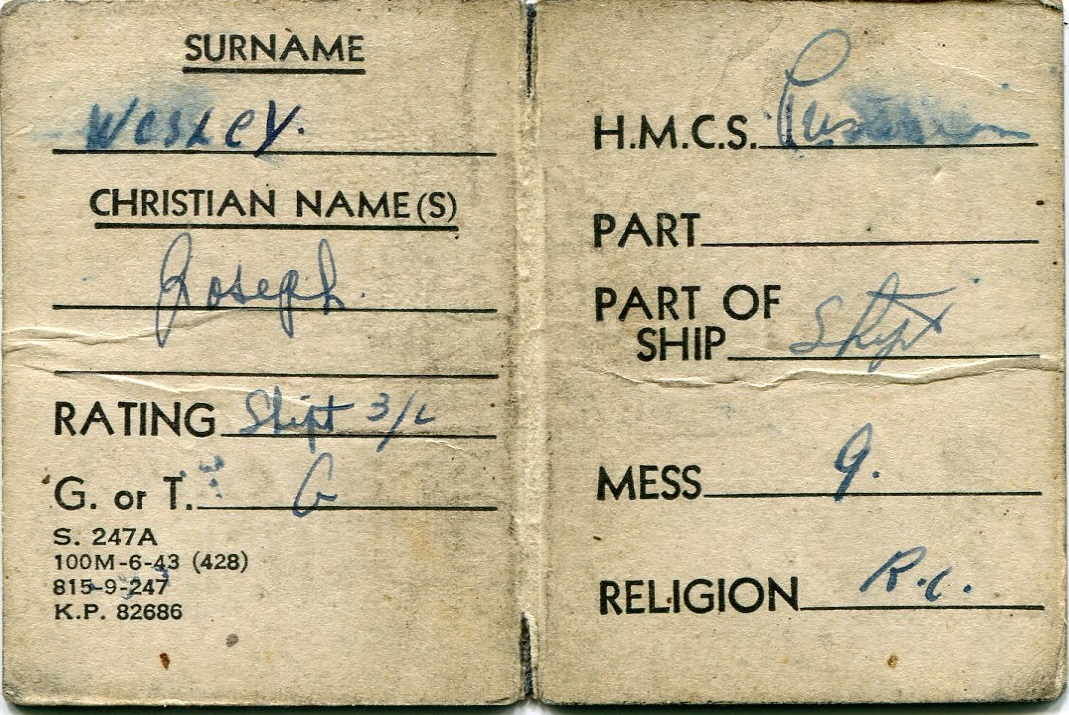 SURNAME
WESLEY.
CHRISTIAN NAME(S)
Joseph.
RATING Shipt 3/c
G. or T. G
S. 247A
100M-6-43 (428)
815-9-247
K.P. 82686
H.M.C.S.
PART
PART OF
SHIP Shipt
MESS 9.
RELIGION R.C.